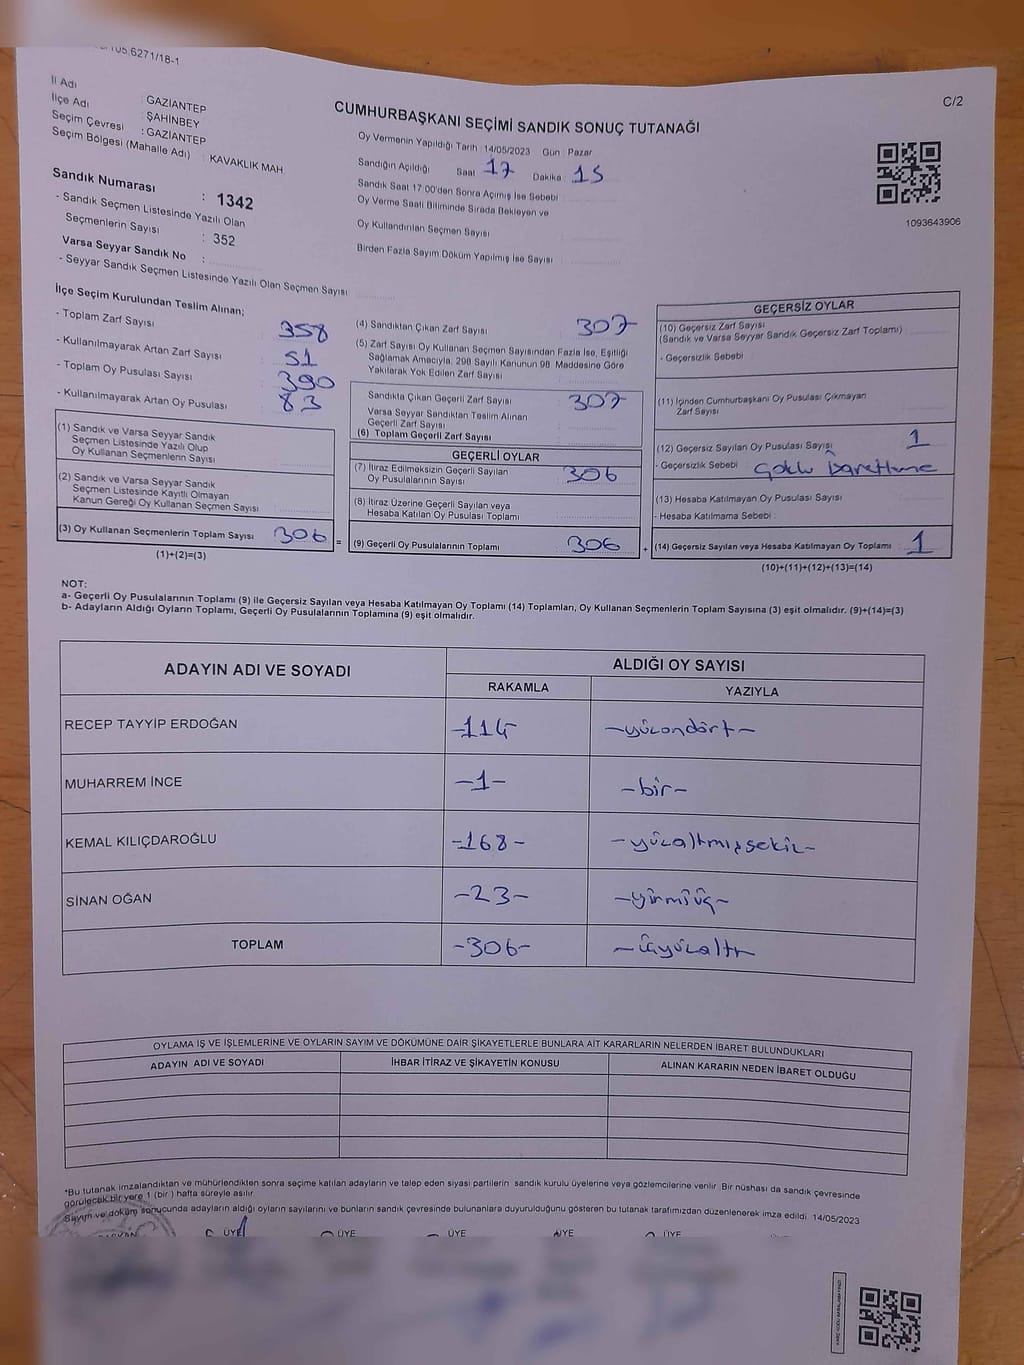 6271/18-1
C/2
İl Adı : GAZİANTEP
İlçe Adı : ŞAHİNBEY
Seçim Çevresi : GAZİANTEP
Seçim Bölgesi (Mahalle Adı) : KAVAKLIK MAH
CUMHURBAŞKANI SEÇİMİ SANDIK SONUÇ TUTANAĞI
Oy Vermenin Yapıldığı Tarih : 14/05/2023 Gün : Pazar
Sandığın Açıldığı Saat : 17 Dakika : 15
Sandık Saat 17:00'den Sonra Açılmış İse Sebebi :
Oy Verme Saati Bitiminde Sırada Bekleyen ve
Oy Kullandırılan Seçmen Sayısı
Birden Fazla Sayım Döküm Yapılmış İse Sayısı :
1093643906
Sandık Numarası : 1342
- Sandık Seçmen Listesinde Yazılı Olan
Seçmenlerin Sayısı : 352
Varsa Seyyar Sandık No :
- Seyyar Sandık Seçmen Listesinde Yazılı Olan Seçmen Sayısı
İlçe Seçim Kurulundan Teslim Alınan;
- Toplam Zarf Sayısı : 358
- Kullanılmayarak Artan Zarf Sayısı : 51
- Toplam Oy Pusulası Sayısı : 390
- Kullanılmayarak Artan Oy Pusulası : 83
(1) Sandık ve Varsa Seyyar Sandık
Seçmen Listesinde Yazılı Olup
Oy Kullanan Seçmenlerin Sayısı :
(2) Sandık ve Varsa Seyyar Sandık
Seçmen Listesinde Kayıtlı Olmayan
Kanun Gereği Oy Kullanan Seçmen Sayısı :
(3) Oy Kullanan Seçmenlerin Toplam Sayısı : 306
(1)+(2)=(3)
=
(4) Sandıktan Çıkan Zarf Sayısı : 307
(5) Zarf Sayısı Oy Kullanan Seçmen Sayısından Fazla İse, Eşitliği
Sağlamak Amacıyla, 298 Sayılı Kanunun 98. Maddesine Göre
Yakılarak Yok Edilen Zarf Sayısı :
Sandıkta Çıkan Geçerli Zarf Sayısı : 307
Varsa Seyyar Sandıktan Teslim Alınan
Geçerli Zarf Sayısı :
(6) Toplam Geçerli Zarf Sayısı :
GEÇERLİ OYLAR
(7) İtiraz Edilmeksizin Geçerli Sayılan
Oy Pusulalarının Sayısı : 306
(8) İtiraz Üzerine Geçerli Sayılan veya
Hesaba Katılan Oy Pusulası Toplamı :
(9) Geçerli Oy Pusulalarının Toplamı : 306
+
GEÇERSİZ OYLAR
(10) Geçersiz Zarf Sayısı
(Sandık ve Varsa Seyyar Sandık Geçersiz Zarf Toplamı) :
- Geçersizlik Sebebi :
(11) İçinden Cumhurbaşkanı Oy Pusulası Çıkmayan
Zarf Sayısı :
(12) Geçersiz Sayılan Oy Pusulası Sayısı : 1
- Geçersizlik Sebebi : Çoklu işaretleme
(13) Hesaba Katılmayan Oy Pusulası Sayısı :
- Hesaba Katılmama Sebebi :
(14) Geçersiz Sayılan veya Hesaba Katılmayan Oy Toplamı : 1
(10)+(11)+(12)+(13)=(14)
NOT:
a- Geçerli Oy Pusulalarının Toplamı (9) ile Geçersiz Sayılan veya Hesaba Katılmayan Oy Toplamı (14) Toplamları, Oy Kullanan Seçmenlerin Toplam Sayısına (3) eşit olmalıdır. (9)+(14)=(3)
b- Adayların Aldığı Oyların Toplamı, Geçerli Oy Pusulalarının Toplamına (9) eşit olmalıdır.
ADAYIN ADI VE SOYADI
ALDIĞI OY SAYISI
RAKAMLA YAZIYLA
RECEP TAYYİP ERDOĞAN -114- -yüzondört-
MUHARREM İNCE -1- -bir-
KEMAL KILIÇDAROĞLU -168- -yüzaltmışsekiz-
SİNAN OĞAN -23- -yirmiüç-
TOPLAM -306- -üçyüzaltı-
OYLAMA İŞ VE İŞLEMLERİNE VE OYLARIN SAYIM VE DÖKÜMÜNE DAİR ŞİKAYETLERLE BUNLARA AİT KARARLARIN NELERDEN İBARET BULUNDUKLARI
ADAYIN ADI VE SOYADI İHBAR İTİRAZ VE ŞİKAYETİN KONUSU ALINAN KARARIN NEDEN İBARET OLDUĞU
*Bu tutanak imzalandıktan ve mühürlendikten sonra seçime katılan adayların ve talep eden siyasi partilerin sandık kurulu üyelerine veya gözlemcilerine verilir. Bir nüshası da sandık çevresinde
görülecek bir yere 1 (bir) hafta süreyle asılır.
Sayım ve döküm sonucunda adayların aldığı oyların sayılarını ve bunların sandık çevresinde bulunanlara duyurulduğunu gösteren bu tutanak tarafımızdan düzenlenerek imza edildi. 14/05/2023
BAŞKAN ÜYE ÜYE ÜYE ÜYE ÜYE